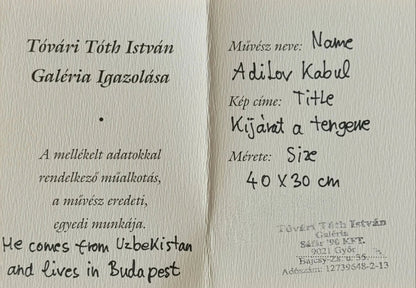 Tóvári Tóth István
Galéria Igazolása
•
A mellékelt adatokkal
rendelkező műalkotás,
a művész eredeti,
egyedi munkája.
He comes from Uzbekistan
and lives in Budapest
Művész neve: Name
Adilov Kabul
Kép címe: Title
Kijárat a tengerre
Mérete: Size
40 x 30 cm
Tóvári Tóth István
Galéria
Sáfár '96 KFT.
9021 Győr
Bajcsy-Zs. u. 35.
Adószám: 12739648-2-13